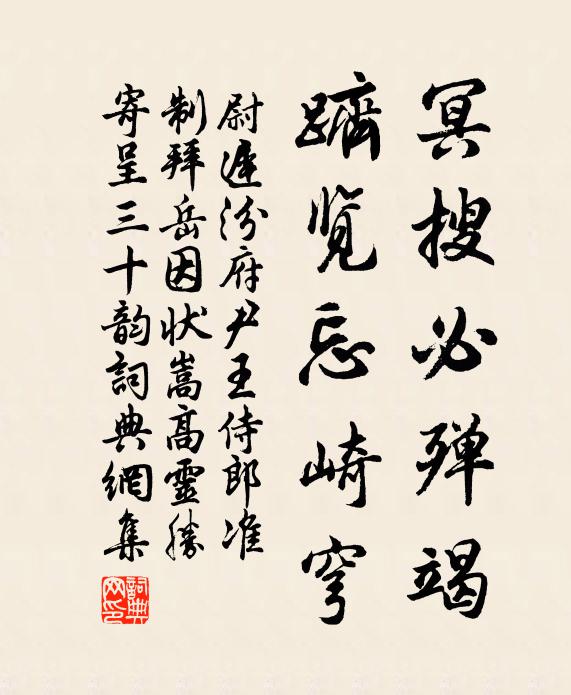 冥搜必殚竭
躋览忘崎穹
尉遲汾府尹王侍郎准
制拜岳因状嵩高靈勝
寄呈三十韵詞典網集
詞典網印